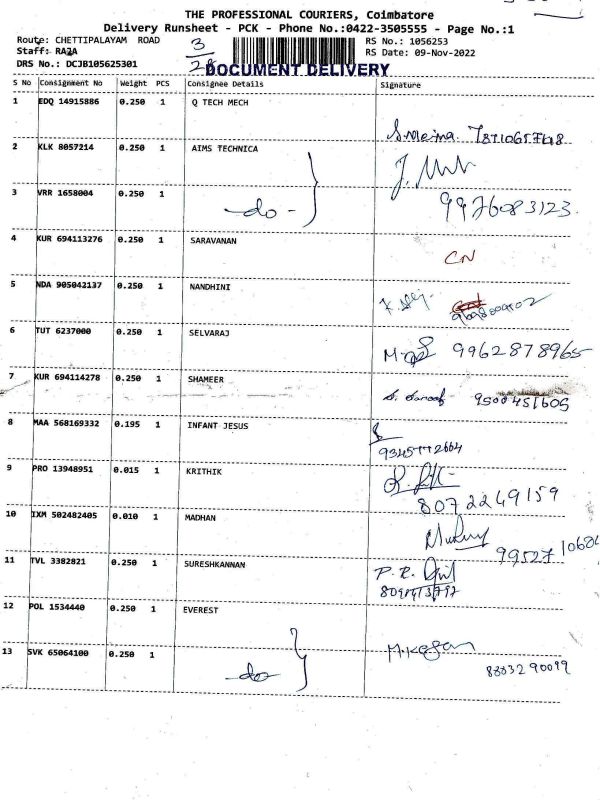 THE PROFESSIONAL COURIERS, Coimbatore
Delivery Runsheet - PCK - Phone No.:0422-3505555 - Page No.:1
Route: CHETTIPALAYAM ROAD 3 RS No.: 1056253
Staff: RAZA RS Date: 09-Nov-2022
DRS No.: DCJB105625301 28 DOCUMENT DELIVERY
S No Consignment No Weight PCS Consignee Details Signature
1 EDQ 14915886 0.250 1 Q TECH MECH
2 KLK 8057214 0.250 1 AIMS TECHNICA
3 VRR 1658004 0.250 1 -do- 9976083123
4 KUR 694113276 0.250 1 SARAVANAN CN
5 NDA 905042137 0.250 1 NANDHINI
6 TUT 6237000 0.250 1 SELVARAJ 9962878965
7 KUR 694114278 0.250 1 SHAMEER 9500451605
8 MAA 568169332 0.195 1 INFANT JESUS
9 PRO 13948951 0.015 1 KRITHIK 8072249159
10 IXM 502482405 0.010 1 MADHAN
11 TVL 3382821 0.250 1 SURESHKANNAN P.R.
12 POL 1534440 0.250 1 EVEREST
13 SVK 65064100 0.250 1 -do- 8883290099